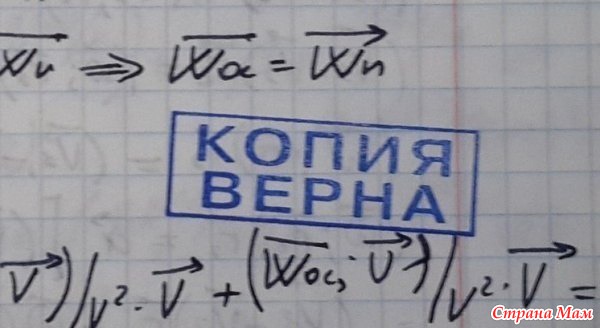 W⃗н ⟹ W⃗ос = W⃗н
КОПИЯ
ВЕРНА
V⃗)/v² · V⃗ + (W⃗ос; · V⃗)/v² · V⃗ =
Страна Мам